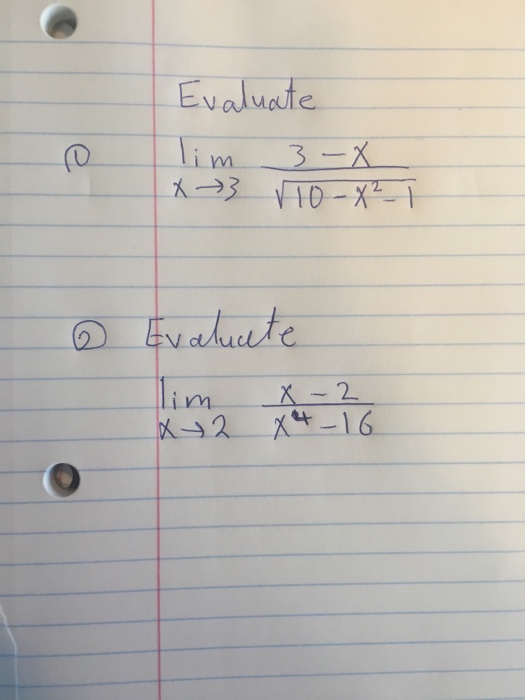 Evaluate
① lim 3 - x
x → 3 √10 - x² - 1
② Evaluate
lim x - 2
x → 2 x⁴ - 16